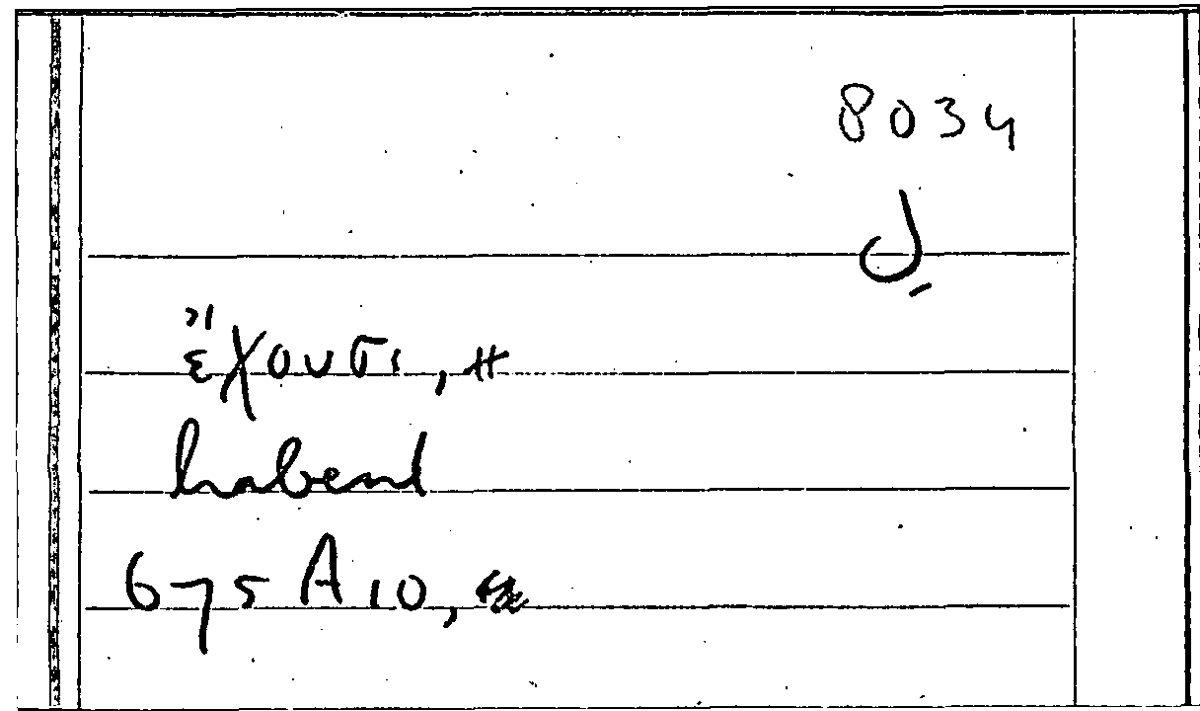 8034
J
ἔχουσι, #
habend
675 A 10,